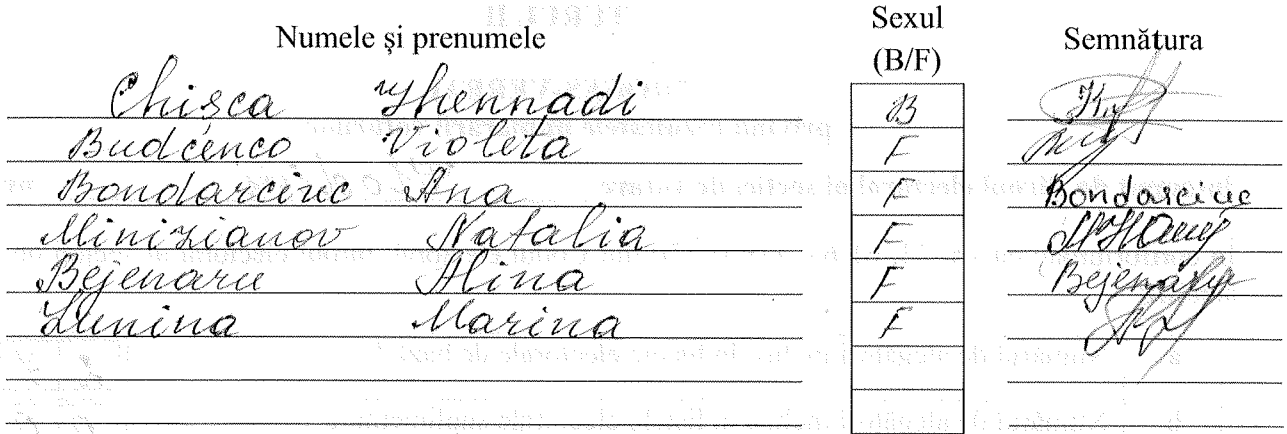 Numele și prenumele Sexul (B/F) Semnătura
Chișca Ghennadi B
Budcenco Violeta F
Bondarciuc Ana F Bondarciuc
Minizianov Natalia F
Bejenaru Alina F Bejenaru
Lunina Marina F